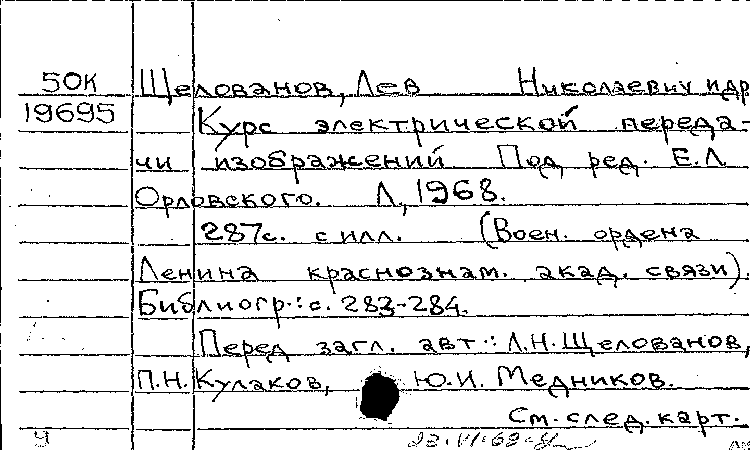 50К Щелованов, Лев Николаевич идр
19695 Курс электрической переда-
чи изображений Под ред. Е.Л
Орловского. Л, 1968.
287с. с илл. (Воен. ордена
Ленина краснознам. акад. связи).
Библиогр.: с. 283-284.
Перед загл. авт: Л.Н.Щелованов,
П.Н.Кулаков, Ю.И. Медников.
См. след. карт.